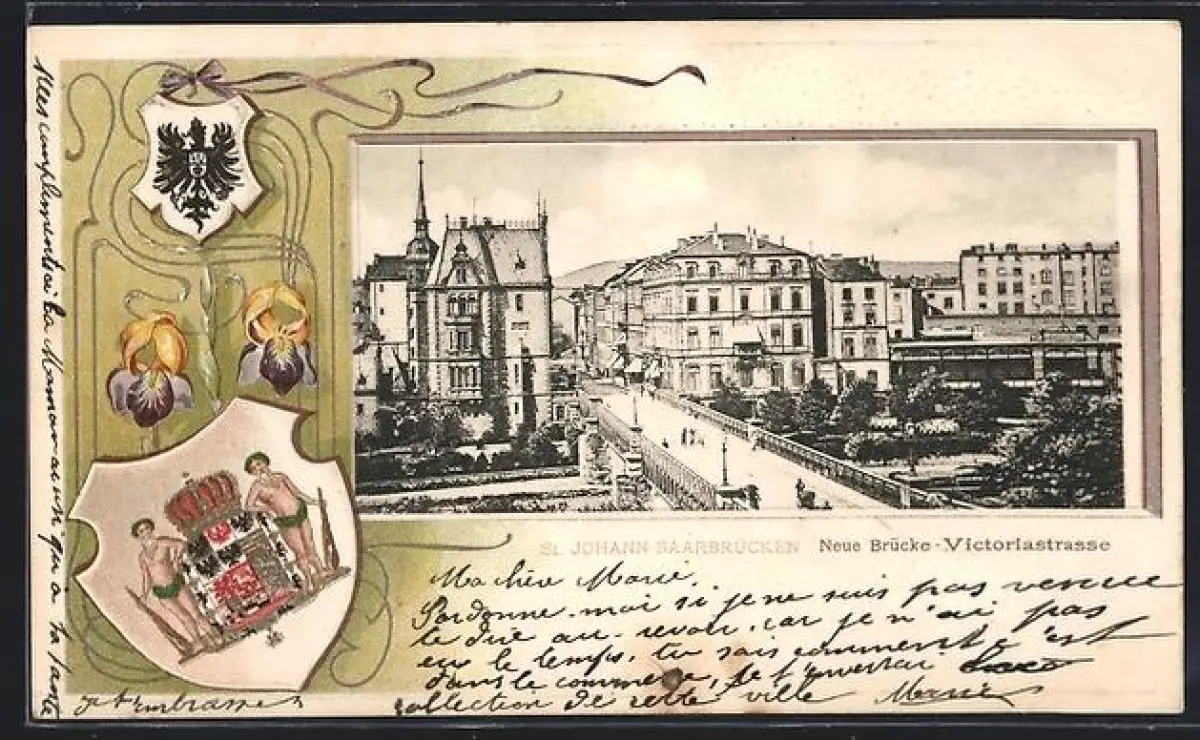 ST. JOHANN-SAARBRÜCKEN Neue Brücke - Victoriastrasse
Ma chère Marie,
Pardonne-moi si je ne suis pas venue
te dire au-revoir, car je n'ai pas
eu le temps, tu sais comment c'est
dans le commerce, je t'enverrai
collection de cette ville
Je t'embrasse
Mes compliments à ta Maman ainsi qu'à ta tante